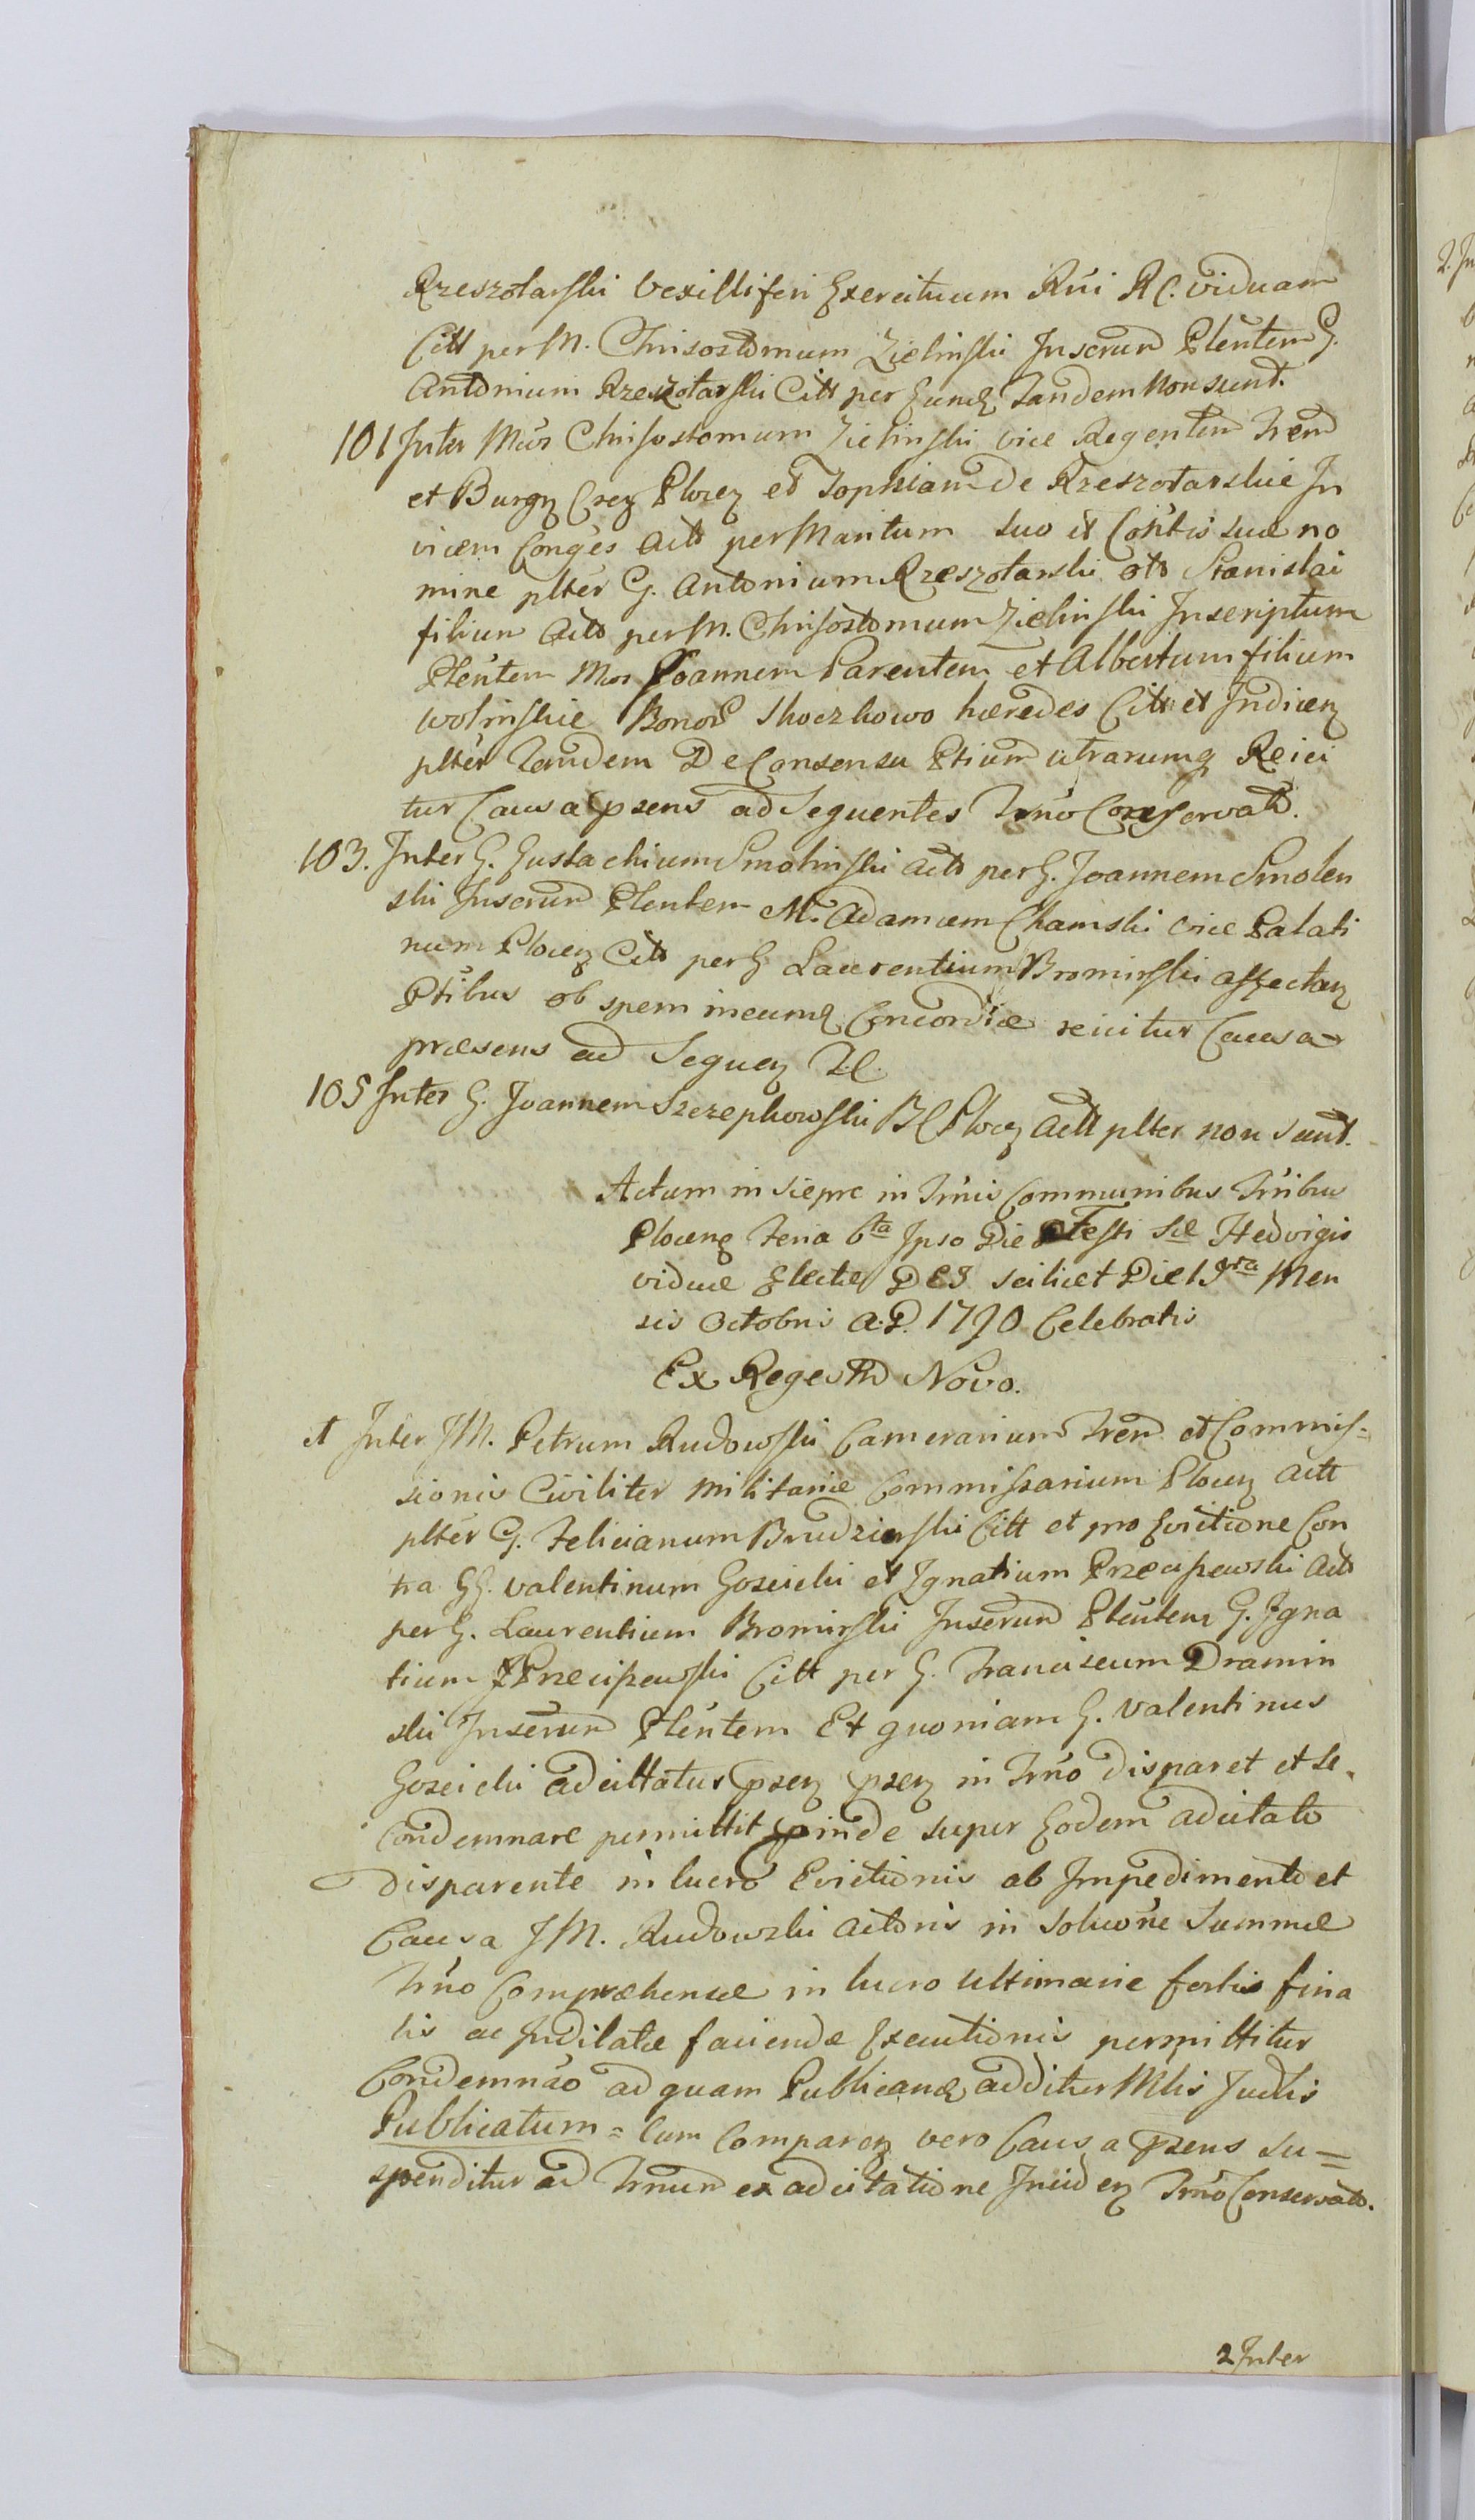 Rzeszotarski Vexilliferi Exercituum Rni Rl. viduam
Citt per M. Chrisostomum Zielinski Inscrum Pleñtem G.
Antonium Rzeszotarski Citt per Eumd Tandem Non sunt.
101 Inter Mcos Chrisostomum Zielinski vice Regentem Tren
et Burg Crez Plocz et Zophiam de Rzeszotarskie In
vicem Conges Acto per Maritum suo et Cońtis suæ no
mine plter G. Antonium Rzeszotarski olo Stanislai
filium Acto per M. Chrisostomum Zielinski Inscriptum
Pleńtem Mcos Joannem Parentem et Albertum filium
Wolinskie Bonor Skoczkowo hæredes Citt et Indicen
plter Tandem De Consensu Ptium utrarumq Reici
tur Causa psens ad Sequentes Trno Conservato.
103. Inter G. Eustachium Smolinski Acto per G. Joannem Smolen
ski Inscrum Plentem M. Adamum Chamski vice Palati
num Plocen Citt per G Laurentium Bromirski affectan
Ptibus ob spem ineund Concordiæ reicitur Causa
præsens ad Sequen
105 Inter G. Joannem Szczepkowski B C Plocz Actt plter non sunt.
Actum in Sierpc in Trnis Communibus Trribus
Plocens Feria 6ta Ipso Die Festi Stæ Hedvigis
viduæ Electæ DES scilicet Die 15ta Men
sis Octobris A.D. 1790 Celebratis
Ex Regestro Novo.
1 Inter JM. Petrum Rudowski Camerarium Tren et Commis=
sionis Civiliter Militariæ Commissarium Plocen Actt
plter G. Felicianum Brudzinski Citt et pro Evictione Con
tra GG. Valentinum Gozicki et Ignatium Przecisewski Acto
per G. Laurentium Bromirski Inserum Pleńtem G. Igna
tium Przecisewski Citt per G. Franciscum Dramin
ski Inserum Pleńtem Et quoniam G. Valentinus
Gozicki adcittatus psen psen in Trno disparet et se
Condemnare permittit proinde super Eodem adcitato
disparente in lucro Evictionis ab Impedimento et
Causa JM. Rudowski Actoris in Soluońe Summæ
Trno Comprehensæ in lucro Ultimariæ fortis fina
lis ac Indilatæ faciendæ Executionis permittitur
Condemnáo ad quam Publicand additur Mlis Judlis
Publicatum = Cum Comparen vero Causa psens su=
spenditur ad Trnum ex adcitatione Inciden Trno Conservato.
2 Inter